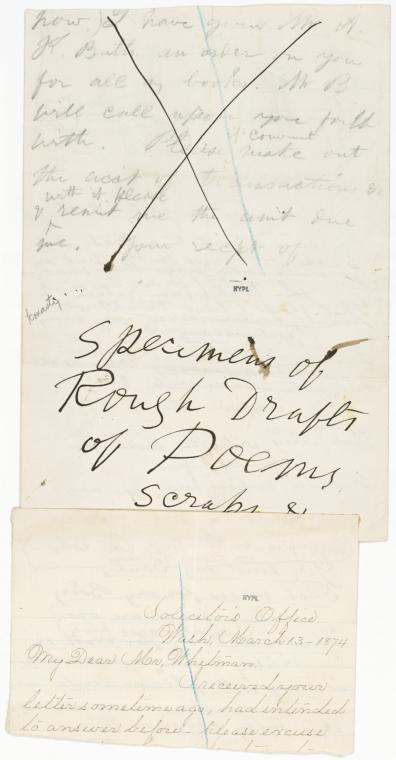 now) I have given Mr. A.
K. Butts an order on you
for all my books. Mr B
will call upon you forth
with. Please make out
the acct of transactions &
with it please
& remit me the am't due
me. Your recpt of
NYPL
Specimens of
Rough Drafts
of Poems
Scraps &
NYPL
Solicitor's Office
Wash. March 13-1874
My Dear Mr. Whitman.
I received your
letter sometime ago, had intended
to answer before - please excuse